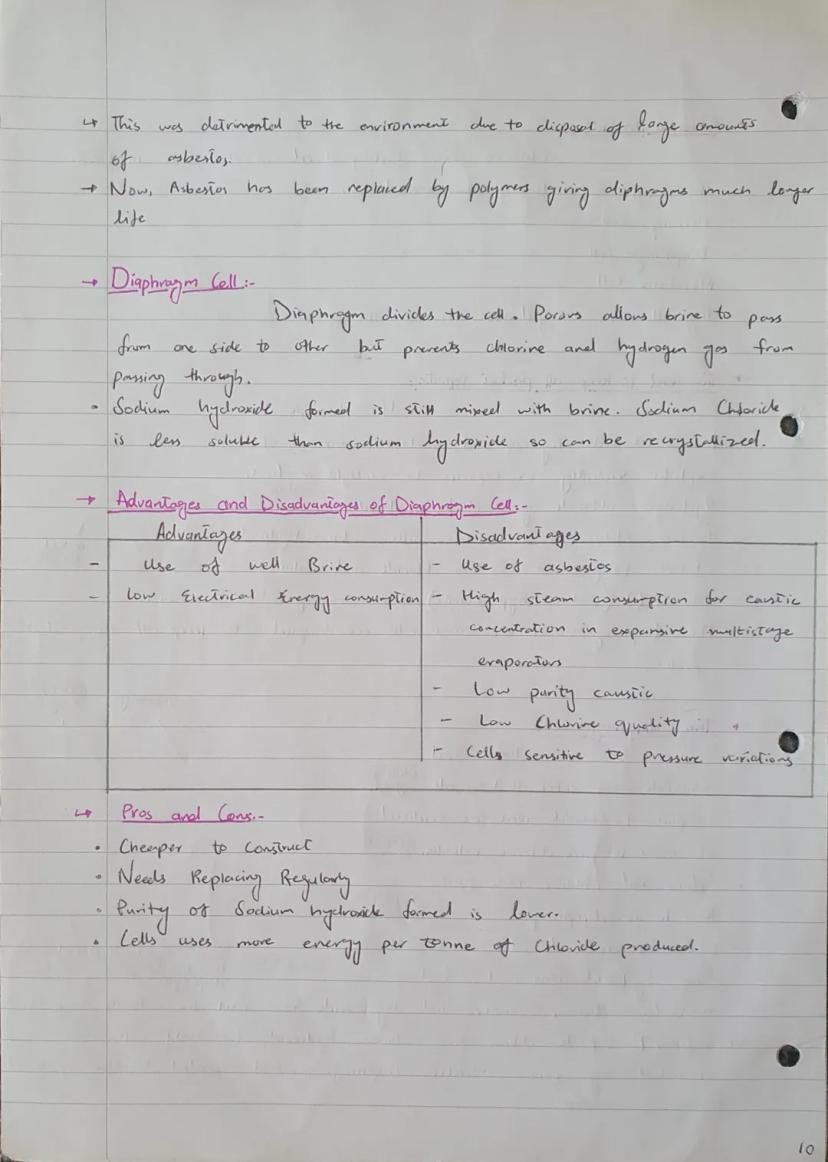 ↳ This was detrimental to the environment due to disposal of large amounts
of asbestos.
→ Now, Asbestos has been replaced by polymers giving diphragms much longer
life
→ Diaphragm Cell:-
Diaphragm divides the cell. Porous allows brine to pass
from one side to other but prevents chlorine and hydrogen gas from
passing through.
• Sodium hydroxide formed is still mixed with brine. Sodium Chloride
is less soluble than sodium hydroxide so can be recrystallized.
→ Advantages and Disadvantages of Diaphragm Cell:-
Advantages
- Use of well Brine
- Low Electrical Energy consumption
Disadvantages
- Use of asbestos
- High steam consumption for caustic
concentration in expansive multistage
evaporators
- Low purity caustic
- Low Chlorine quality
- Cells sensitive to pressure variations
↳ Pros and Cons:-
• Cheaper to Construct
• Needs Replacing Regularly
• Purity of Sodium hydroxide formed is lower.
• Cells uses more energy per tonne of Chloride produced.
10